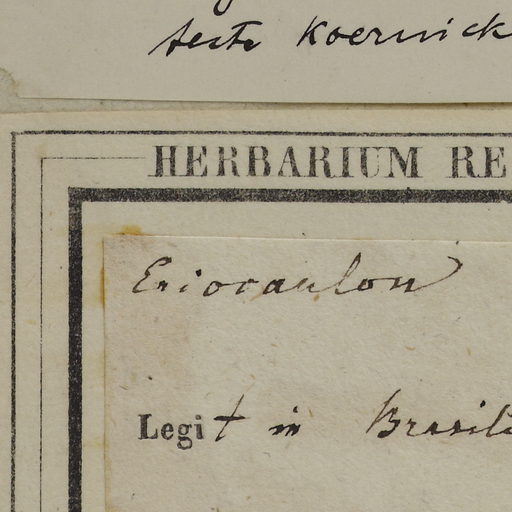 teste Koernick
HERBARIUM RE
Eriocaulon
Legit in Brasili